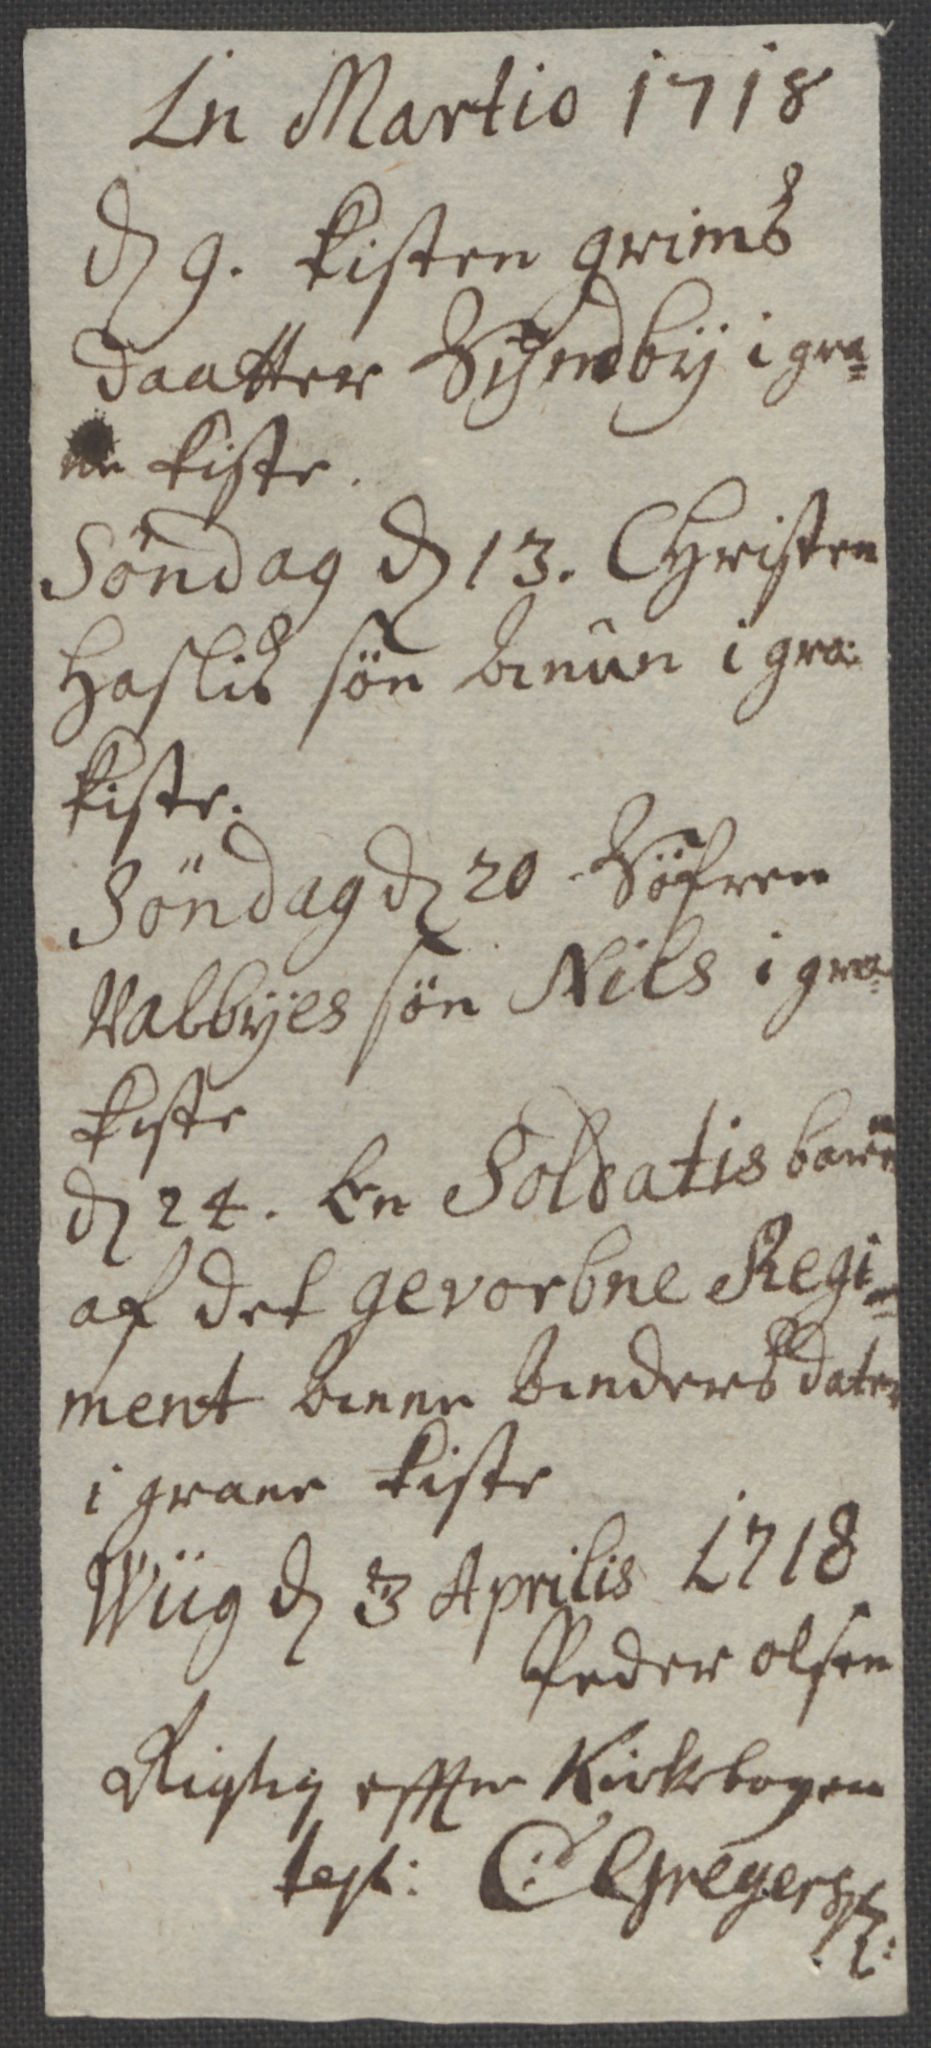 In Martio 1718
d 9. kisten grims
daatter Schmdbÿ i gra=
ne kiste.
Söndag d 13. Christen
Haslis sön i gra:
kiste.
Söndag d 20 Söfren
Valbÿes sön Nils i gra=
kiste
d 24. En Soldatis barn
af det gevorbne Regi=
ment binders dater
i graae kiste
Wiig d 3 Aprilis 1718
Peder olsen
Rigtig effter Kirkebogen
test: C Gregers